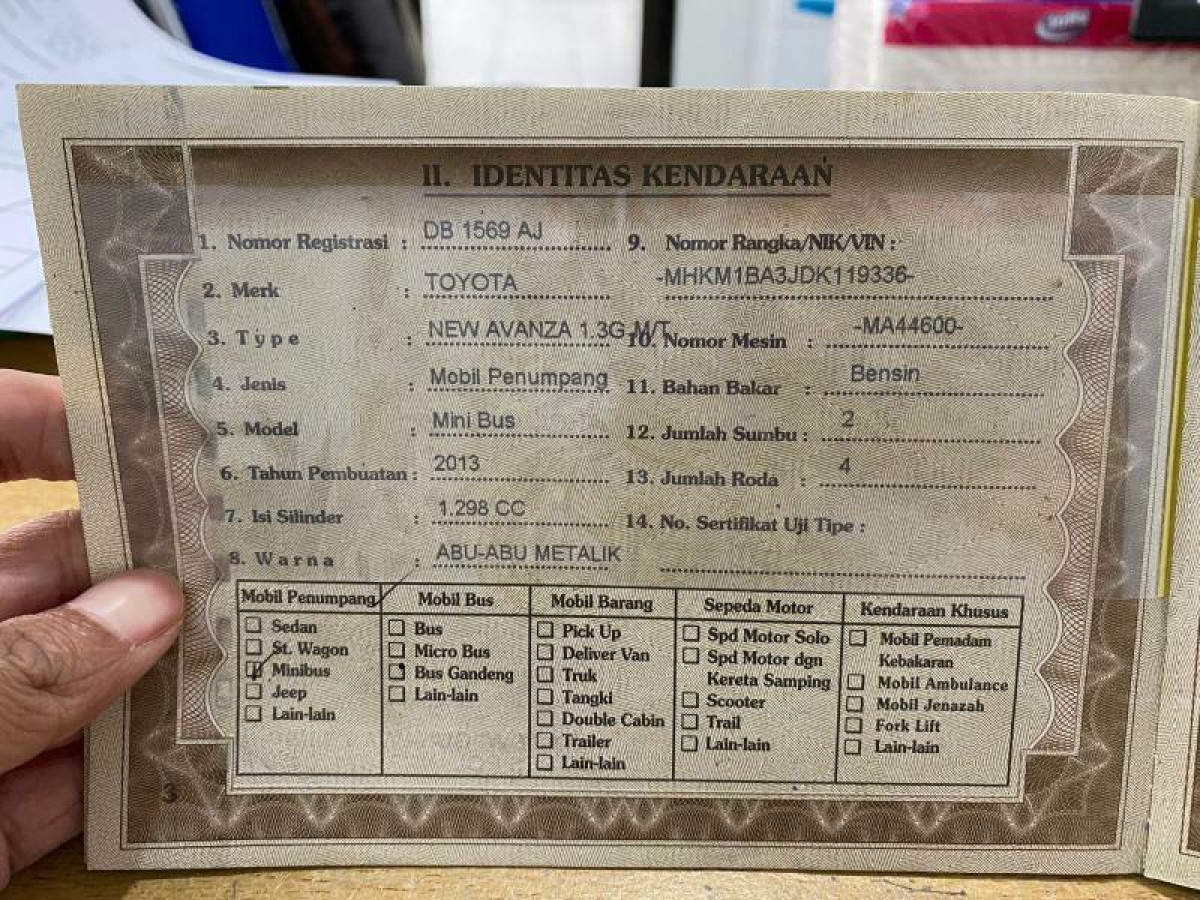 II. IDENTITAS KENDARAAN
1. Nomor Registrasi : DB 1569 AJ
2. Merk : TOYOTA
3. Type : NEW AVANZA 1.3G M/T
4. Jenis : Mobil Penumpang
5. Model : Mini Bus
6. Tahun Pembuatan : 2013
7. Isi Silinder : 1.298 CC
8. Warna : ABU-ABU METALIK
9. Nomor Rangka/NIK/VIN :
-MHKM1BA3JDK119336-
10. Nomor Mesin : -MA44600-
11. Bahan Bakar : Bensin
12. Jumlah Sumbu : 2
13. Jumlah Roda : 4
14. No. Sertifikat Uji Tipe :
Mobil Penumpang
Sedan
St. Wagon
Minibus
Jeep
Lain-lain
Mobil Bus
Bus
Micro Bus
Bus Gandeng
Lain-lain
Mobil Barang
Pick Up
Deliver Van
Truk
Tangki
Double Cabin
Trailer
Lain-lain
Sepeda Motor
Spd Motor Solo
Spd Motor dgn
Kereta Samping
Scooter
Trail
Lain-lain
Kendaraan Khusus
Mobil Pemadam
Kebakaran
Mobil Ambulance
Mobil Jenazah
Fork Lift
Lain-lain
3